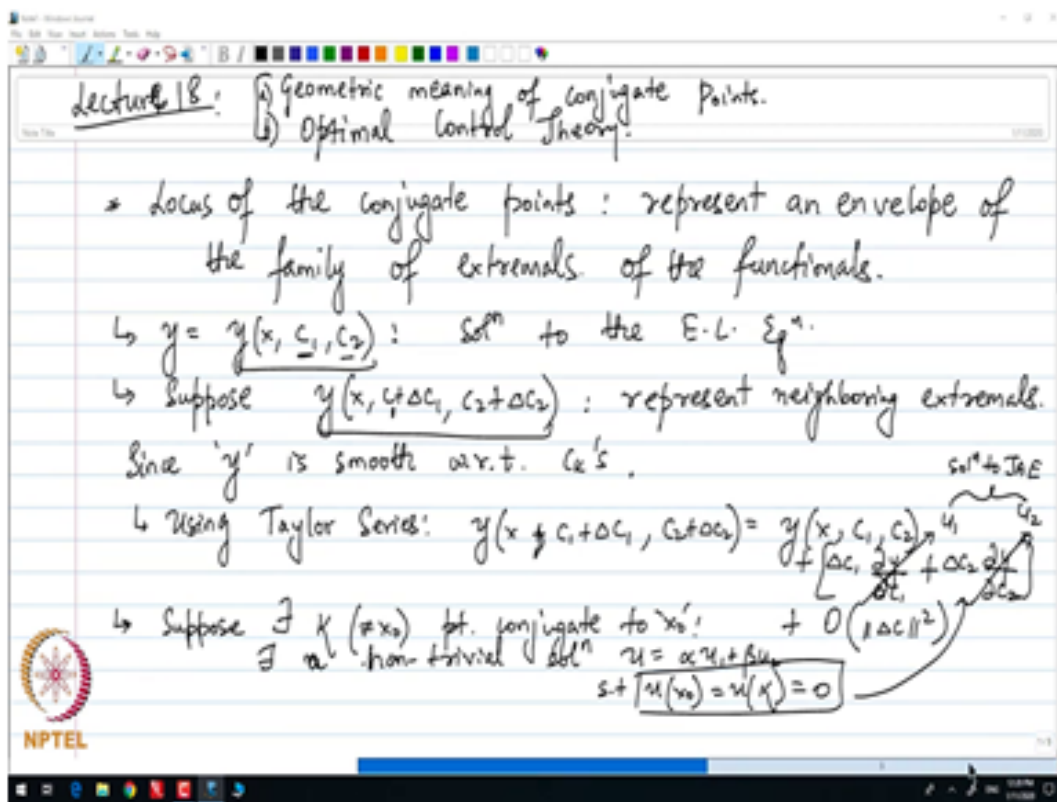 Lecture 18: (a) Geometric meaning of conjugate Points.
(b) Optimal Control Theory.
* Locus of the conjugate points : represent an envelope of
the family of extremals of the functionals.
↳ y = y(x, C₁, C₂) : Solⁿ to the E.L. Eqⁿ.
↳ Suppose y(x, C₁+ΔC₁, C₂+ΔC₂) : represent neighboring extremals.
Since 'y' is smooth w.r.t. Cₖ's.
solⁿ to JAE
↳ Using Taylor Series: y(x, C₁+ΔC₁, C₂+ΔC₂) = y(x, C₁, C₂) u₁ u₂
+ [ΔC₁ ∂y/∂C₁ + ΔC₂ ∂y/∂C₂]
↳ Suppose ∃ K (≠x₀) pt. conjugate to 'x₀': + O(||ΔC||²)
∃ a non-trivial solⁿ u = αu₁+βu₂
s.t u(x₀) = u(K) = 0
NPTEL